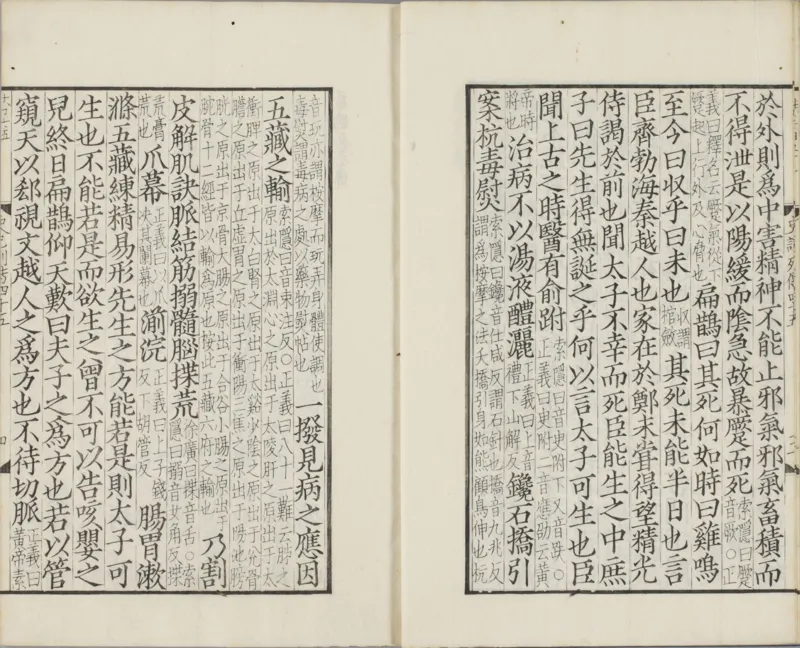 於外則爲中害精神不能止邪氣邪氣畜積而
不得泄是以陽緩而陰急故暴蹷而死索隱曰蹷音厥○正
義曰釋名云蹷氣從下蹷起上行外及心脅也扁鵲曰其死何如時曰雞鳴
至今曰收乎曰未也收謂棺斂其死未能半日也言
臣齊勃海秦越人也家在於鄭未甞得望精光
侍謁於前也聞太子不幸而死臣能生之中庶
子曰先生得無誕之乎何以言太子可生也臣
聞上古之時醫有俞跗索隱曰音臾附下又音趺○正義曰臾附二音應劭云黃
帝時將也治病不以湯液醴灑正義曰上音禮下山解反鑱石撟引
案杬毒熨索隱曰鑱音仕咸反謂石針也撟音九兆反謂爲按摩之法夭撟引身如熊顧鳥伸也杬
音玩亦謂按摩而玩弄身體使調也毒熨謂毒病之處以藥物熨帖也一撥見病之應因
五藏之輸索隱曰音束注反○正義曰八十一難云肺之原出於太淵心之原出于太陵肝之原出于太
衝脾之原出于太白腎之原出于太谿少陰之原出于兌骨膽之原出于丘虛胃之原出于衝陽三焦之原出于陽池膀
胱之原出于京骨大腸之原出于合谷小腸之原出于腕骨十二經皆以輸爲原也按此五藏六府之輸也乃割
皮解肌訣脈結筋搦髓腦揲荒徐廣曰揲音舌○索隱曰搦音女角反揲
荒膏荒也爪幕正義曰以爪決其闌幕也湔浣正義曰上子錢反下胡管反腸胃漱
滌五藏練精易形先生之方能若是則太子可
生也不能若是而欲生之曾不可以告咳嬰之
兒終日扁鵲仰天歎曰夫子之爲方也若以管
窺天以郄視文越人之爲方也不待切脈正義曰黃帝素
四